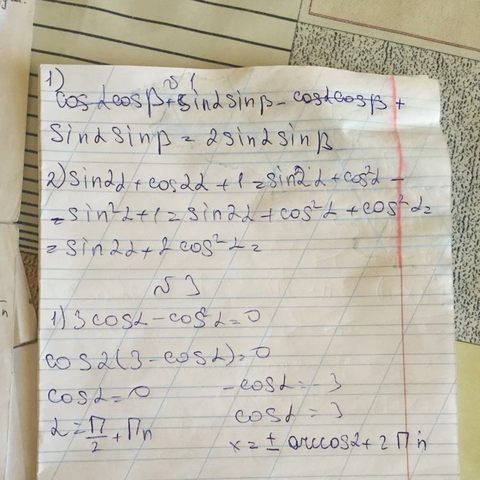 1) №1
cosα cosβ + sinα sinβ - cosα cosβ +
sinα sinβ = 2 sinα sinβ
2) sin2α + cos2α + 1 = sin2α + cos²α -
= sin²α + 1 = sin2α + cos²α + cos²α =
= sin2α + 2 cos²α =
№3
1) 3 cosα - cos²α = 0
cosα (3 - cosα) = 0
cosα = 0 -cosα = -3
α = П/2 + Пn cosα = 3
x = ± arccosα + 2Пn